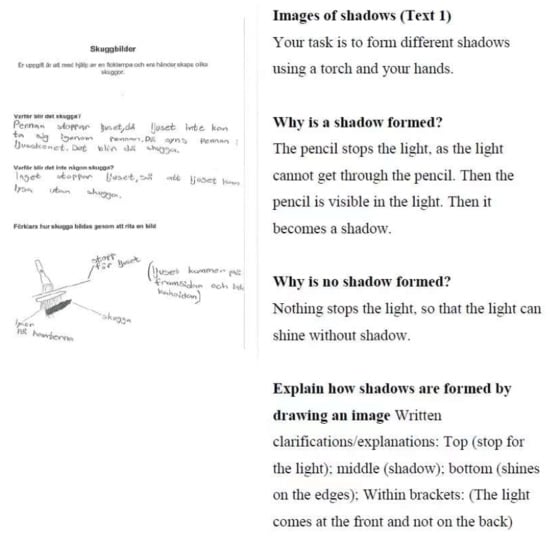 Skuggbilder
Er uppgift är att med hjälp av en ficklampa och era händer skapa olika
skuggor.
Varför blir det skugga?
Pennan stoppar ljuset, då ljuset inte kan
ta sig igenom pennan. Då syns pennan i
ljusskenet. Det blir då skugga.
Varför blir det inte någon skugga?
Inget stoppar ljuset, så att ljuset kan
lysa utan skugga.
Förklara hur skugga bildas genom att rita en bild
stopp
för ljuset
(ljuset kommer på
framsidan och
skugga
lyser
på kanterna
Images of shadows (Text 1)
Your task is to form different shadows
using a torch and your hands.
Why is a shadow formed?
The pencil stops the light, as the light
cannot get through the pencil. Then the
pencil is visible in the light. Then it
becomes a shadow.
Why is no shadow formed?
Nothing stops the light, so that the light can
shine without shadow.
Explain how shadows are formed by
drawing an image Written
clarifications/explanations: Top (stop for
the light); middle (shadow); bottom (shines
on the edges); Within brackets: (The light
comes at the front and not on the back)